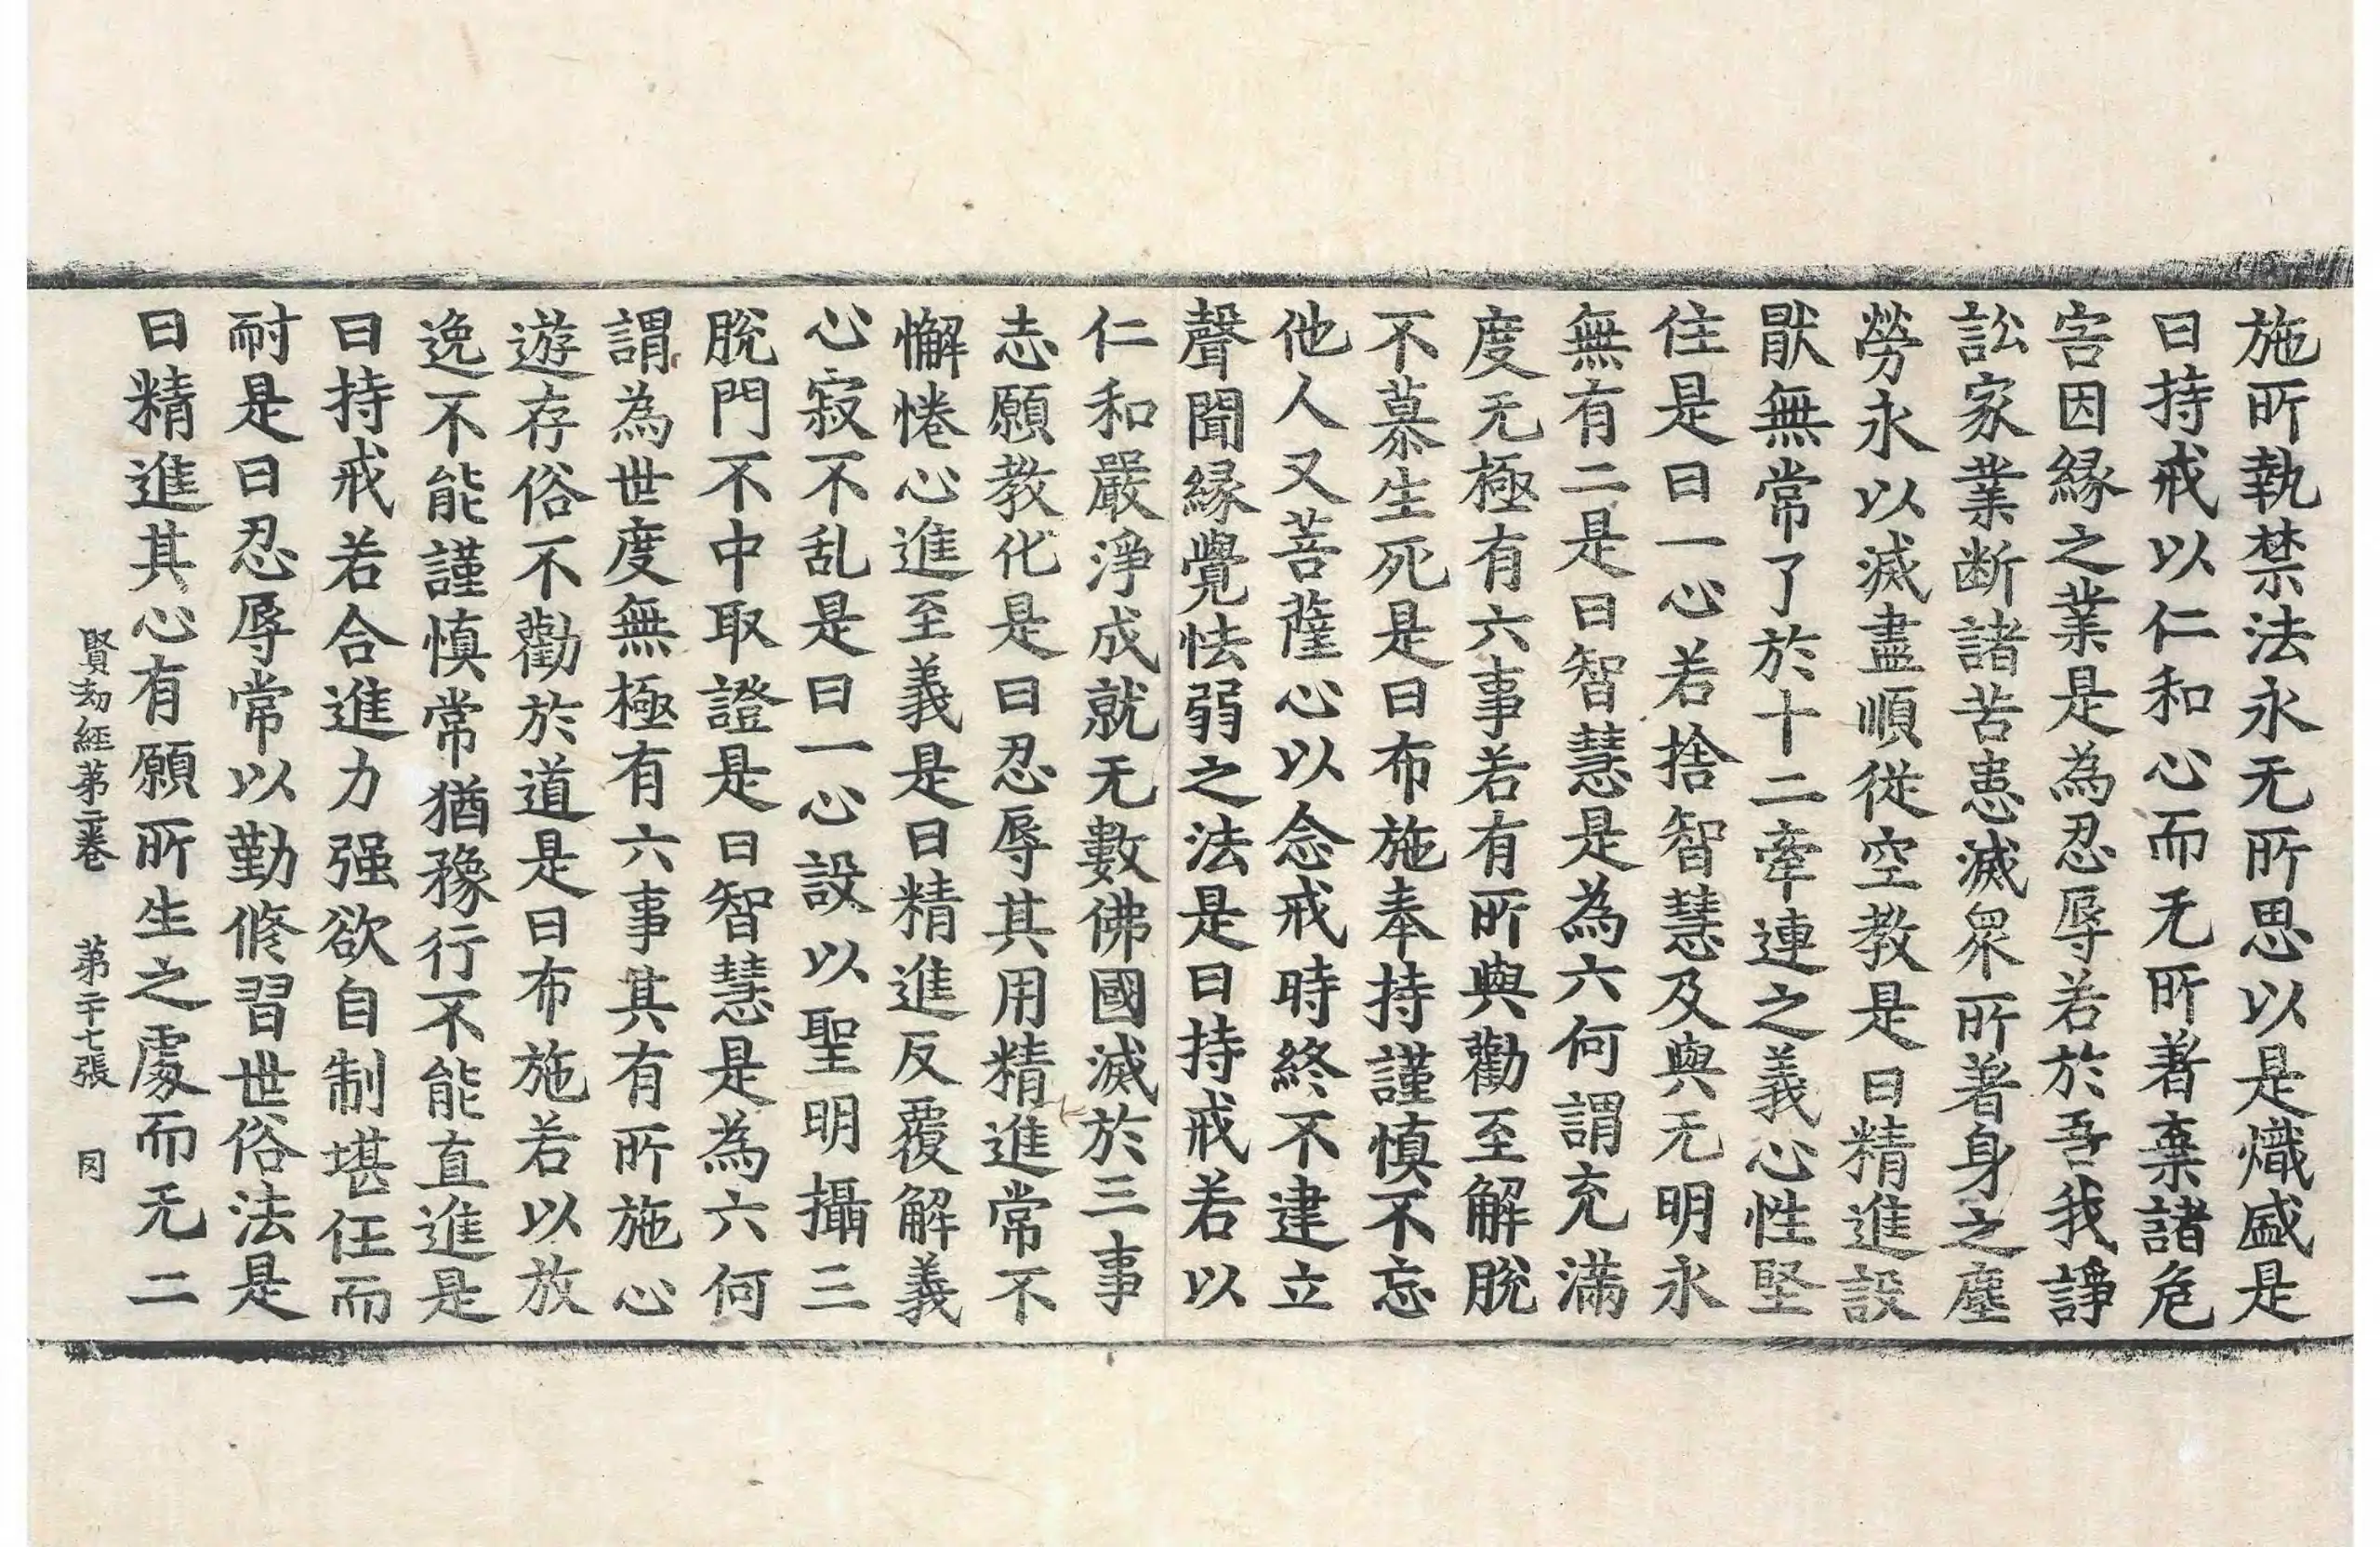 施所執禁法永无所思以是熾盛是
曰持戒以仁和心而无所著棄諸危
害因緣之業是為忍辱若於吾我諍
訟家業断諸苦患滅衆所著身之塵
勞永以滅盡順從空教是曰精進設
猒無常了於十二牽連之義心性堅
住是曰一心若捨智慧及與无明永
無有二是曰智慧是為六何謂充滿
度无極有六事若有所與勸至解脫
不慕生死是曰布施奉持謹慎不忘
他人又菩薩心以念戒時終不建立
聲聞緣覺怯弱之法是曰持戒若以
仁和嚴淨成就无數佛國滅於三事
志願教化是曰忍辱其用精進常不
懈惓心進至義是曰精進反覆解義
心寂不乱是曰一心設以聖明攝三
脫門不中取證是曰智慧是為六何
謂為世度無極有六事其有所施心
遊存俗不勸於道是曰布施若以放
逸不能謹慎常猶豫行不能直進是
曰持戒若合進力强欲自制堪任而
耐是曰忍辱常以勤修習世俗法是
曰精進其心有願所生之處而无二
賢劫經第二卷 第二十七張 冈